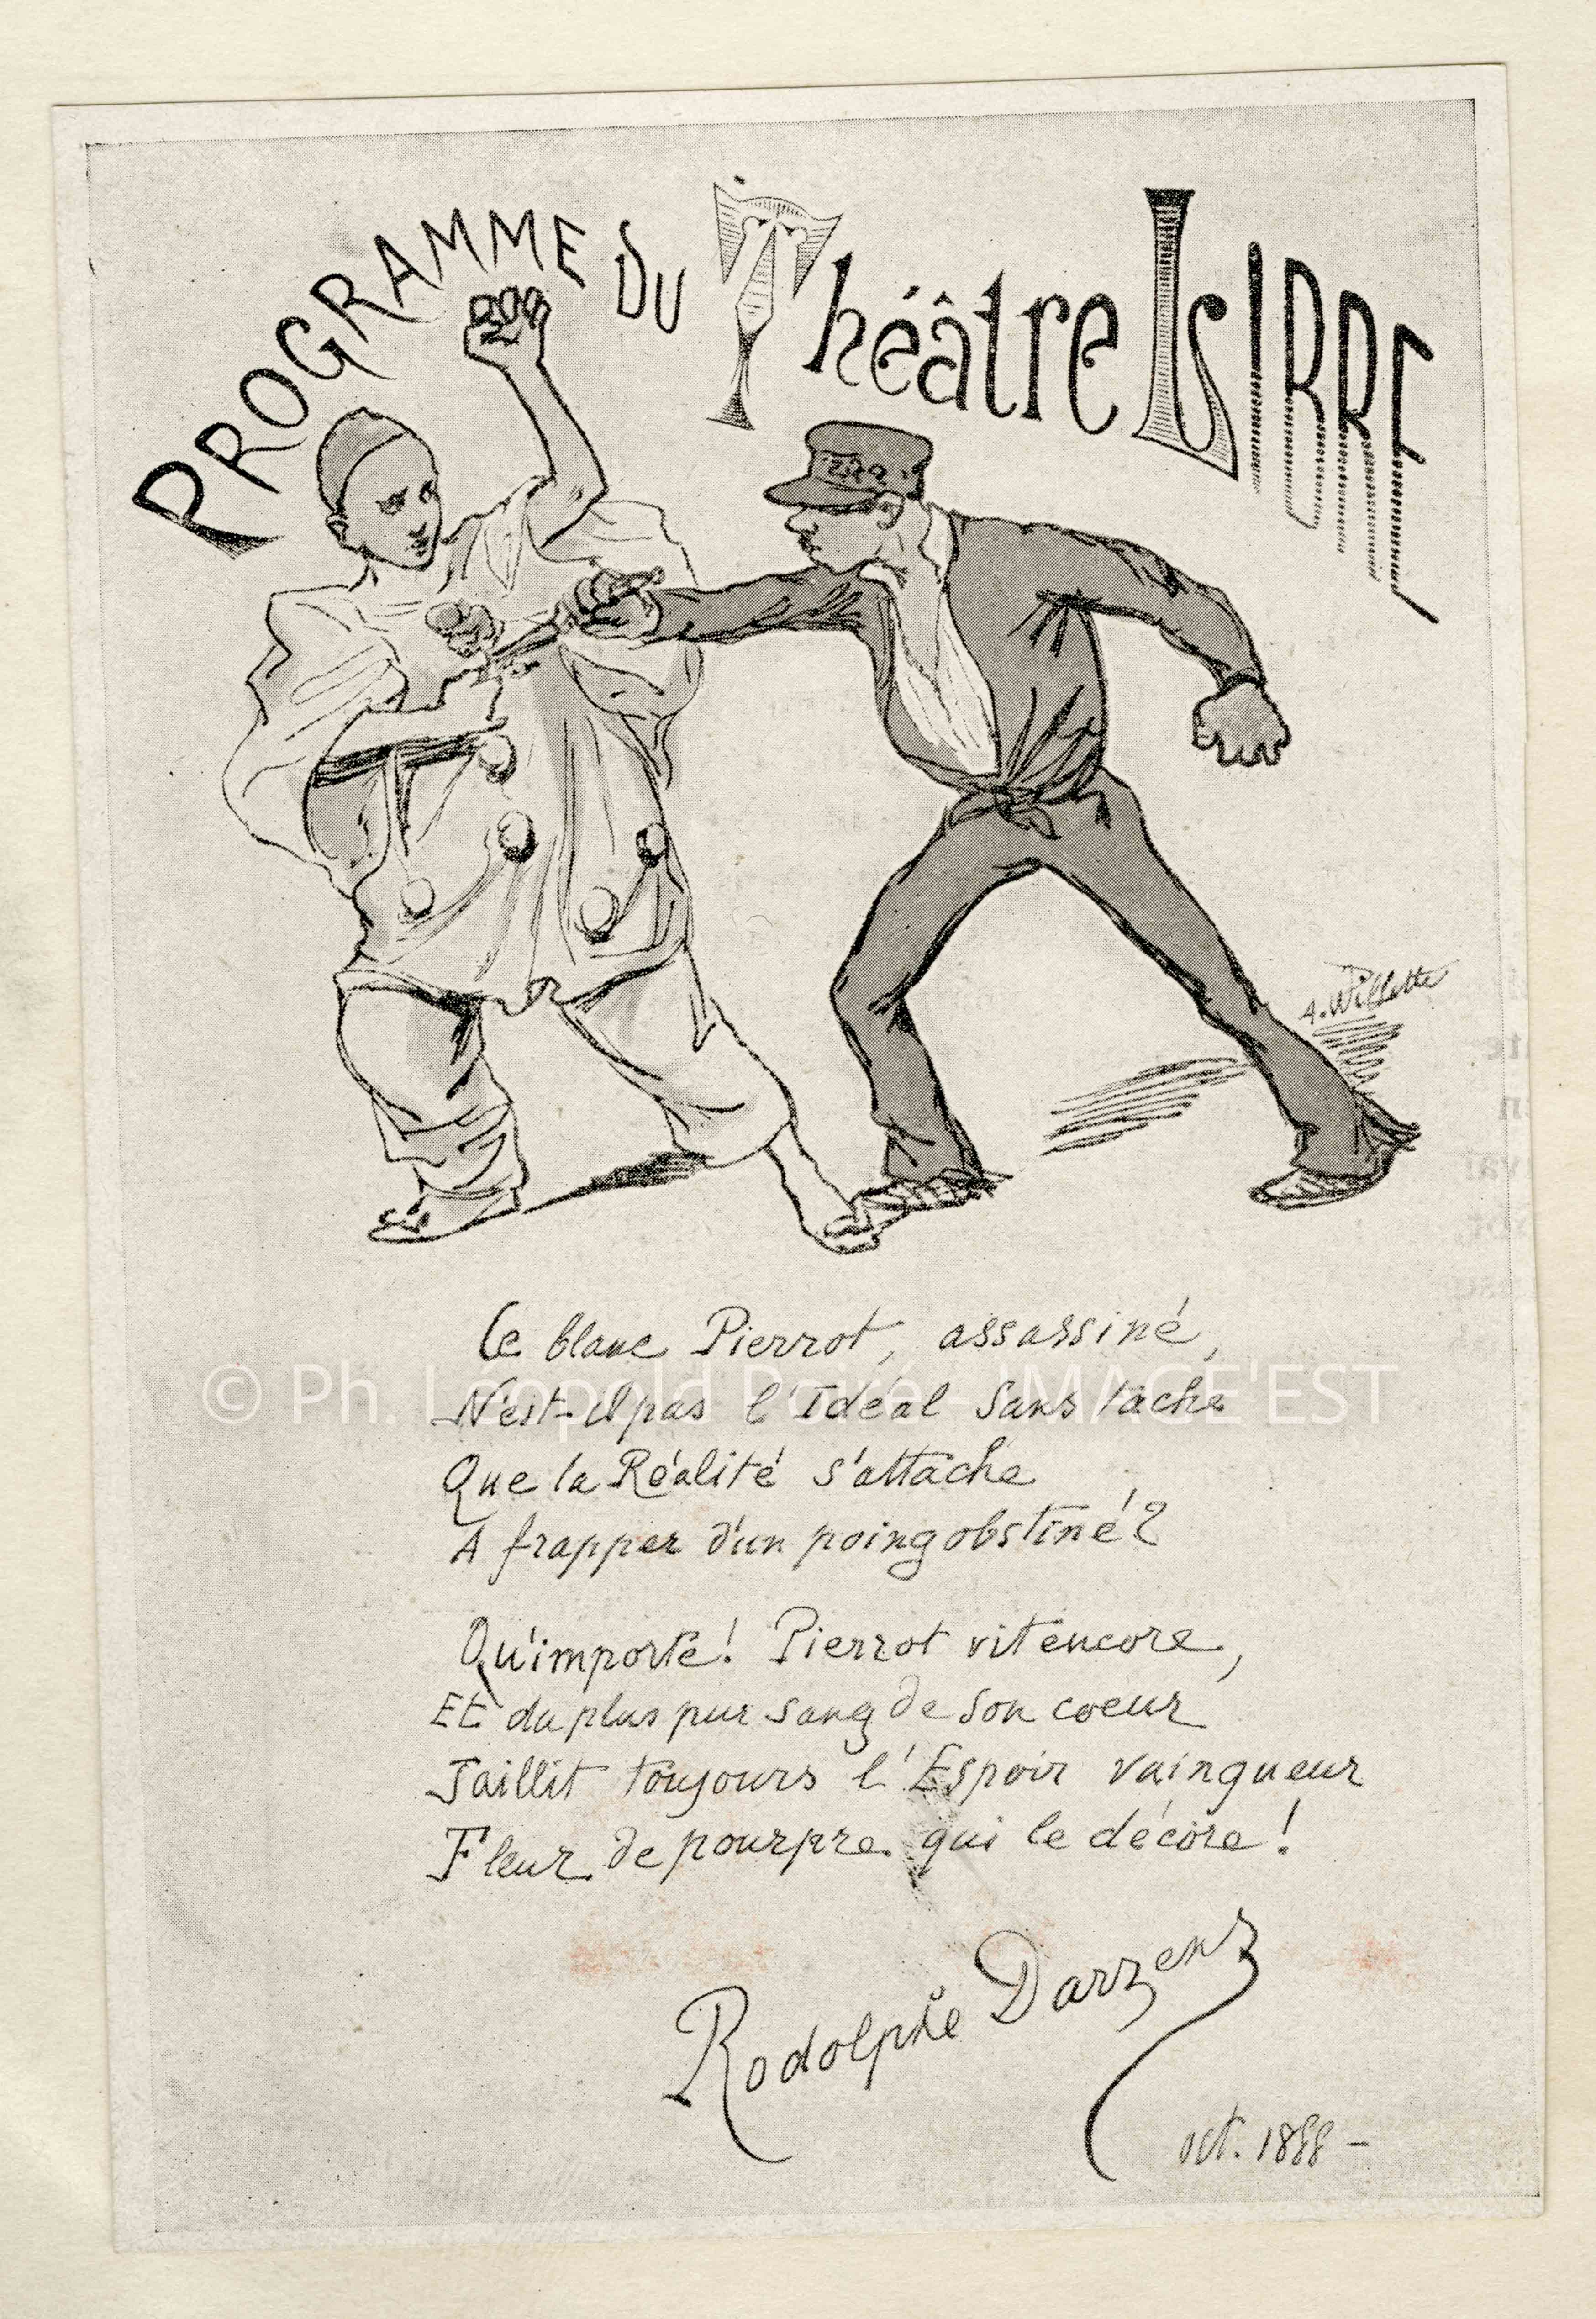 PROGRAMME DU Théâtre LIBRE
A. Willette
Ce blanc Pierrot, assassiné,
N'est-il pas l'Idéal Sans tache
Que la Réalité s'attache
A frapper d'un poing obstiné?
Qu'importe! Pierrot vit encore,
Et du plus pur sang de son coeur
Jaillit toujours l'Espoir vainqueur
Fleur de pourpre qui le décore!
Rodolphe Darzens
oct. 1888 -
© Ph. Leopold IMAGE'EST